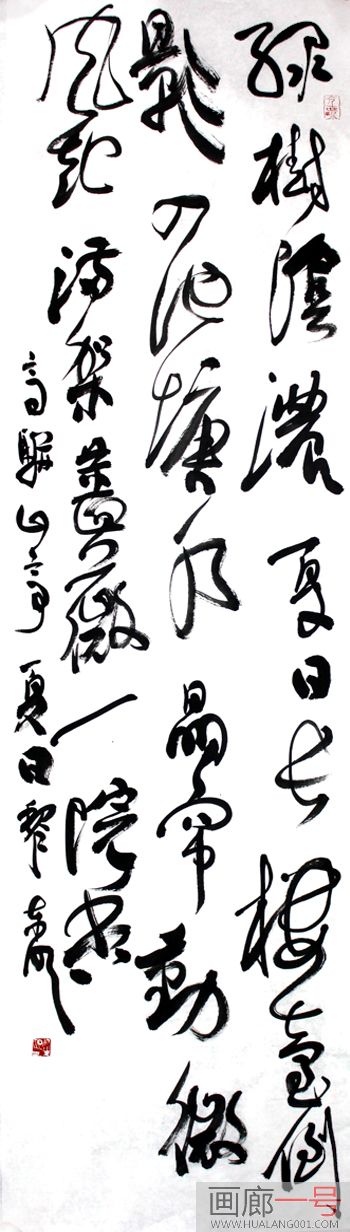 绿樹陰濃夏日长樓臺倒
影入池塘水晶帘動微
风起满架薔薇一院香
高駢山亭夏日黎东明
画廊一号
WWW.HUALANG001.COM